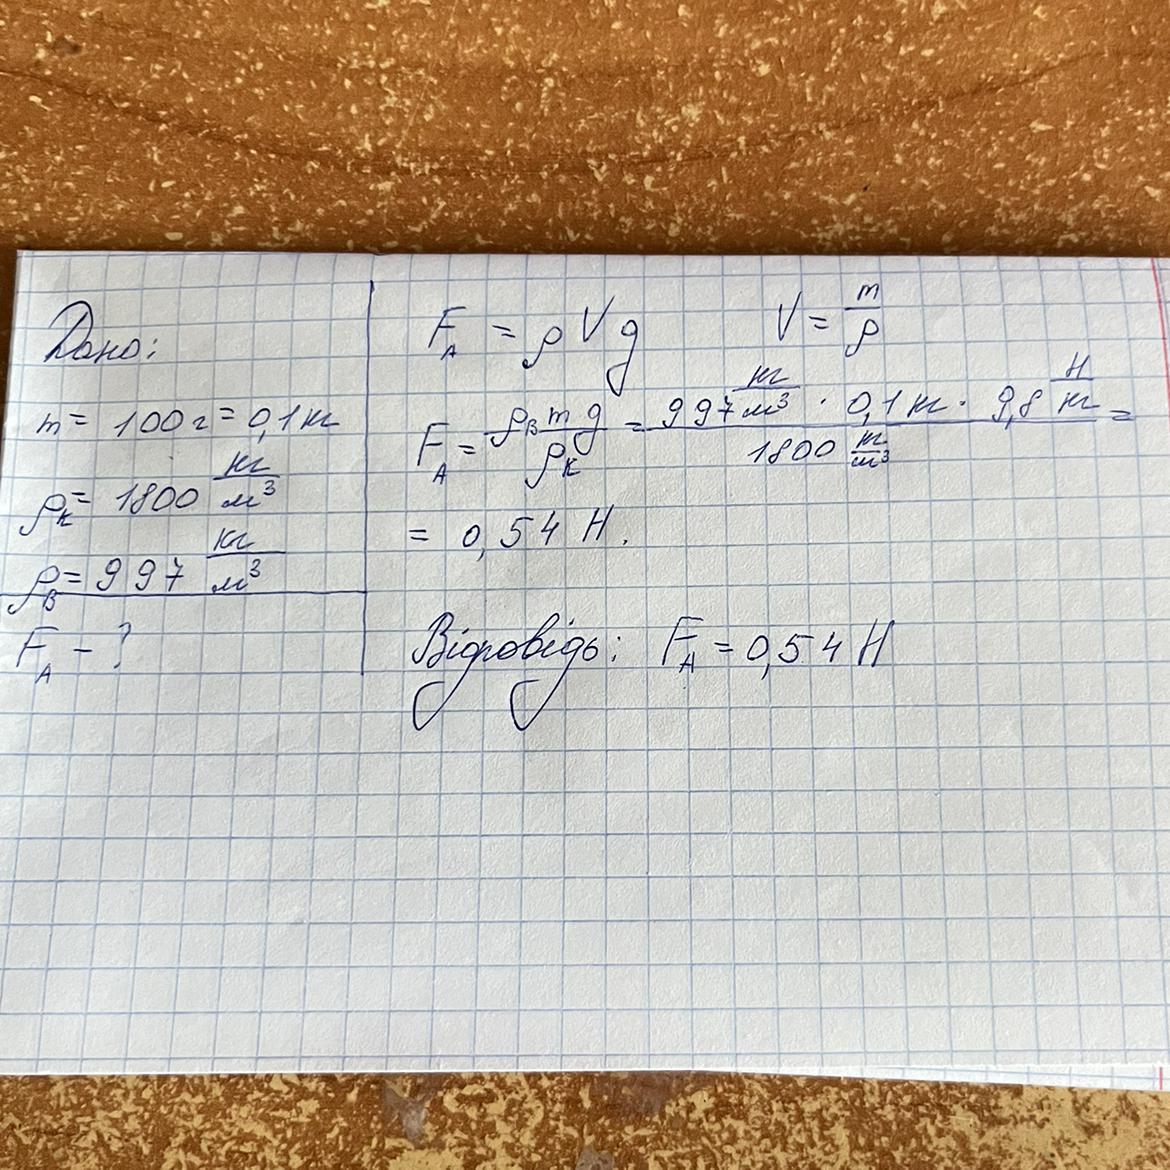 Дано:
m = 100 г = 0,1 кг
ρк = 1800 кг/м³
ρв = 997 кг/м³
FА - ?
FА = ρVg V = m/ρ
FА = ρв m g / ρк = 997 кг/м³ · 0,1 кг · 9,8 Н/кг / 1800 кг/м³ =
= 0,54 Н.
Відповідь: FА = 0,54 Н